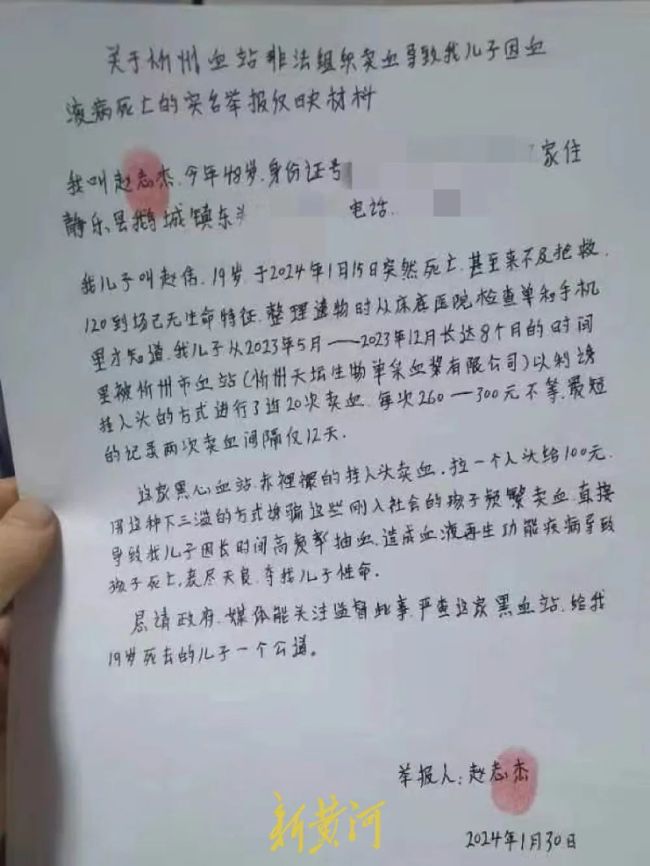 关于忻州血站非法组织卖血导致我儿子因血
液病死亡的实名举报反映材料
我叫赵志杰.今年48岁.身份证号
家住
静乐县鹅城镇东
电话
我儿子叫赵伟.19岁.于2024年1月15日突然死亡.甚至来不及抢救.
120到场已无生命特征.整理遗物时从床底医院检查单和手机
里才知道.我儿子从2023年5月——2023年12月长达8个月的时间
里被忻州市血站(忻州天坛生物单采血浆有限公司)以利诱
挂人头的方式进行了近20次卖血.每次260—300元不等.最短
的记录两次卖血间隔仅12天.
这家黑心血站.赤裸裸的挂人头卖血.拉一个人头给100元.
用这种下三滥的方式诱骗这些刚入社会的孩子频繁卖血.直接
导致我儿子因长时间高频率抽血.造成血液再生功能疾病导致
孩子死亡.丧尽天良.夺我儿子性命.
恳请政府.媒体能关注监督此事.严查这家黑血站.给我
19岁死去的儿子一个公道。
举报人:赵志杰
2024年1月30日
新黄河